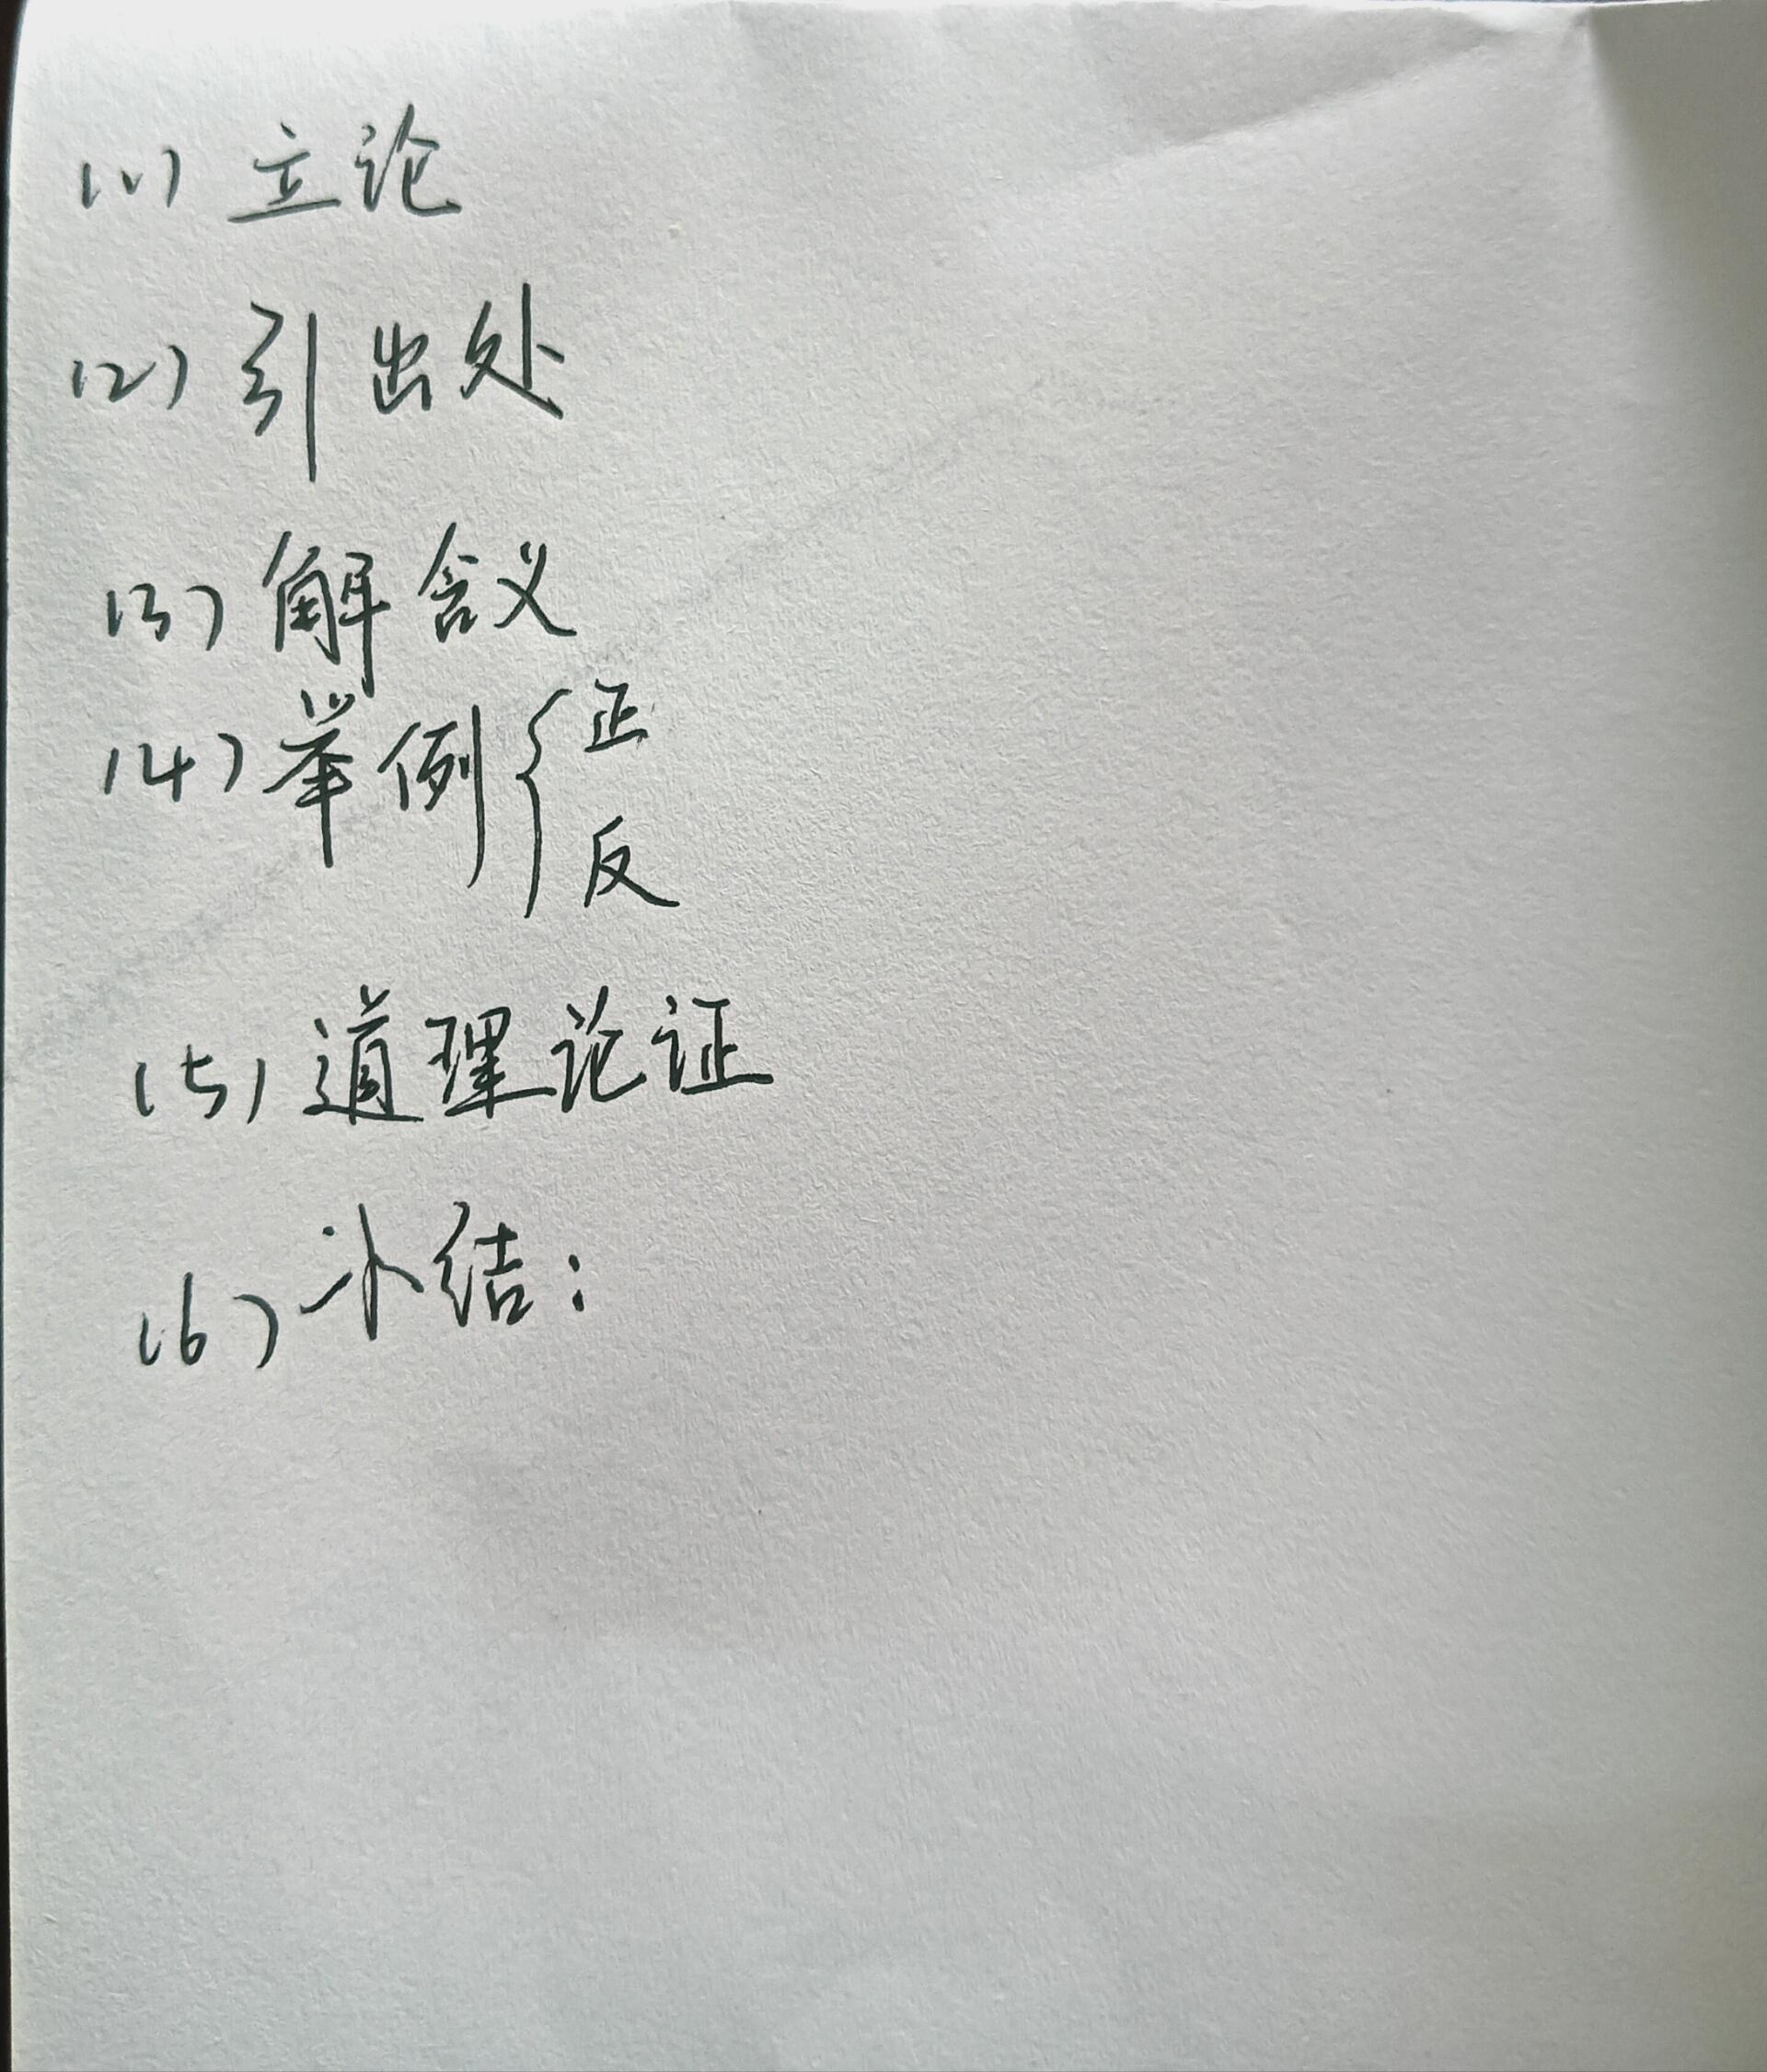 (1) 立论
(2) 引出处
(3) 解含义
(4) 举例 { 正
反
(5) 道理论证
(6) 小结: